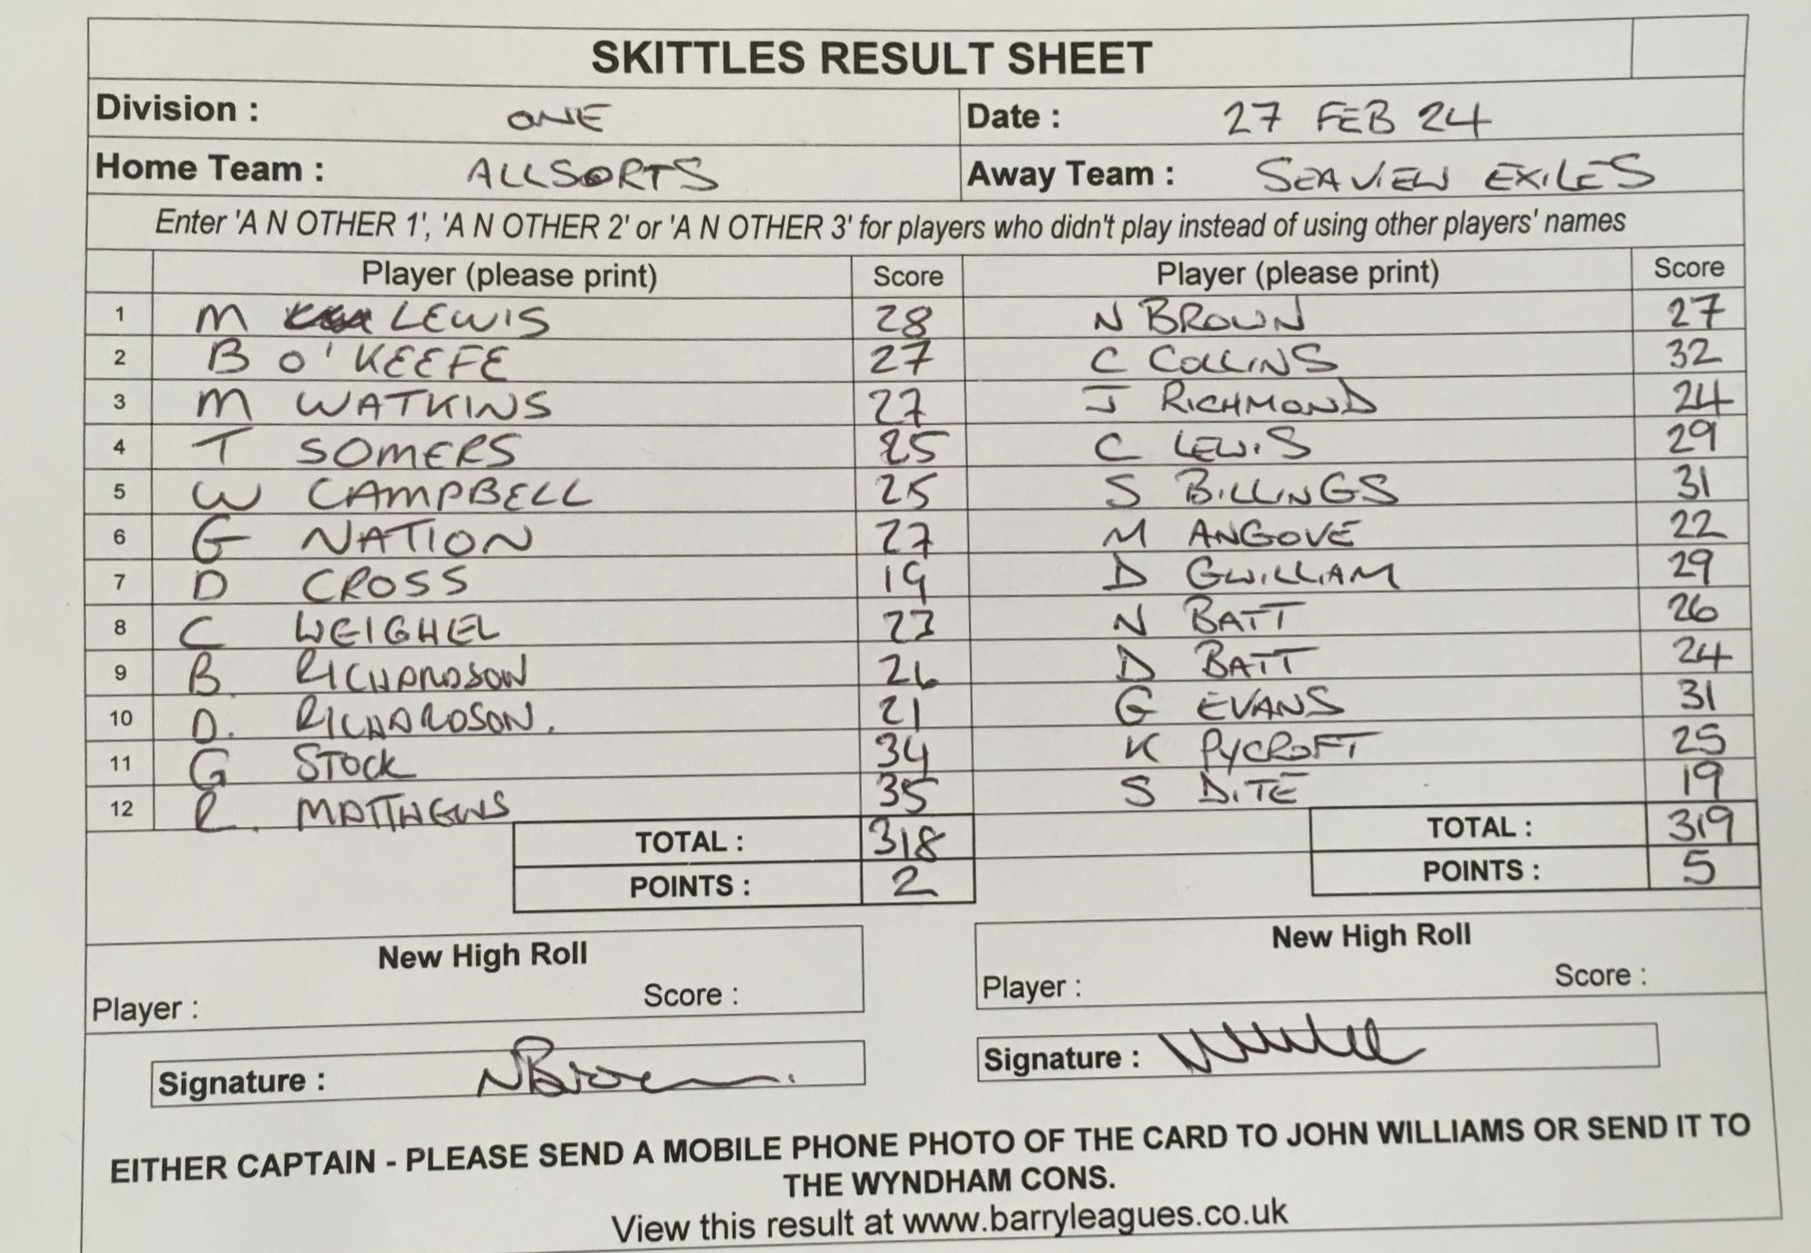 SKITTLES RESULT SHEET
Division : ONE Date : 27 FEB 24
Home Team : ALLSORTS Away Team : SEAVIEW EXILES
Enter 'A N OTHER 1', 'A N OTHER 2' or 'A N OTHER 3' for players who didn't play instead of using other players' names
Player (please print) Score Player (please print) Score
1 M LEWIS 28 N BROWN 27
2 B O'KEEFE 27 C COLLINS 32
3 M WATKINS 27 J RICHMOND 24
4 T SOMERS 25 C LEWIS 29
5 W CAMPBELL 25 S BILLINGS 31
6 G NATION 27 M ANGOVE 22
7 D CROSS 19 D GWILLIAM 29
8 C WEIGHEL 23 N BATT 26
9 B. RICHARDSON 26 D BATT 24
10 D. RICHARDSON. 21 G EVANS 31
11 G STOCK 34 K PYCROFT 25
12 R. MATTHEWS 35 S DITE 19
TOTAL : 318 TOTAL : 319
POINTS : 2 POINTS : 5
New High Roll New High Roll
Player : Score : Player : Score :
Signature : NBrown. Signature :
EITHER CAPTAIN - PLEASE SEND A MOBILE PHONE PHOTO OF THE CARD TO JOHN WILLIAMS OR SEND IT TO
THE WYNDHAM CONS.
View this result at www.barryleagues.co.uk